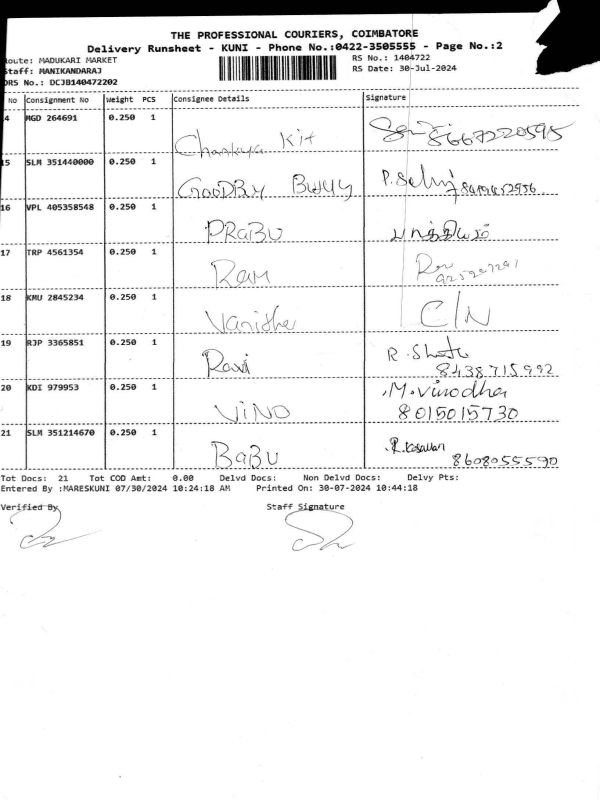 THE PROFESSIONAL COURIERS, COIMBATORE
Delivery Runsheet - KUNI - Phone No.:0422-3505555 - Page No.:2
Route: MADUKARI MARKET RS No.: 1404722
Staff: MANIKANDARAJ RS Date: 30-Jul-2024
DRS No.: DCJB140472202
No Consignment No Weight PCS Consignee Details Signature
4 MGD 264691 0.250 1 Chankya Kit 8667220595
15 SLM 351440000 0.250 1 GooDBy P.Selvi
16 VPL 405358548 0.250 1 PRaBU
17 TRP 4561354 0.250 1 Ram
18 KMU 2845234 0.250 1 Vanisha C/N
19 RJP 3365851 0.250 1 Ravi R. 8438715992
20 KDI 979953 0.250 1 ViNO M.Vinodha 8015015730
21 SLM 351214670 0.250 1 BaBU 8608055590
Tot Docs: 21 Tot COD Amt: 0.00 Delvd Docs: Non Delvd Docs: Delvy Pts:
Entered By :MARESKUNI 07/30/2024 10:24:18 AM Printed On: 30-07-2024 10:44:18
Verified By Staff Signature